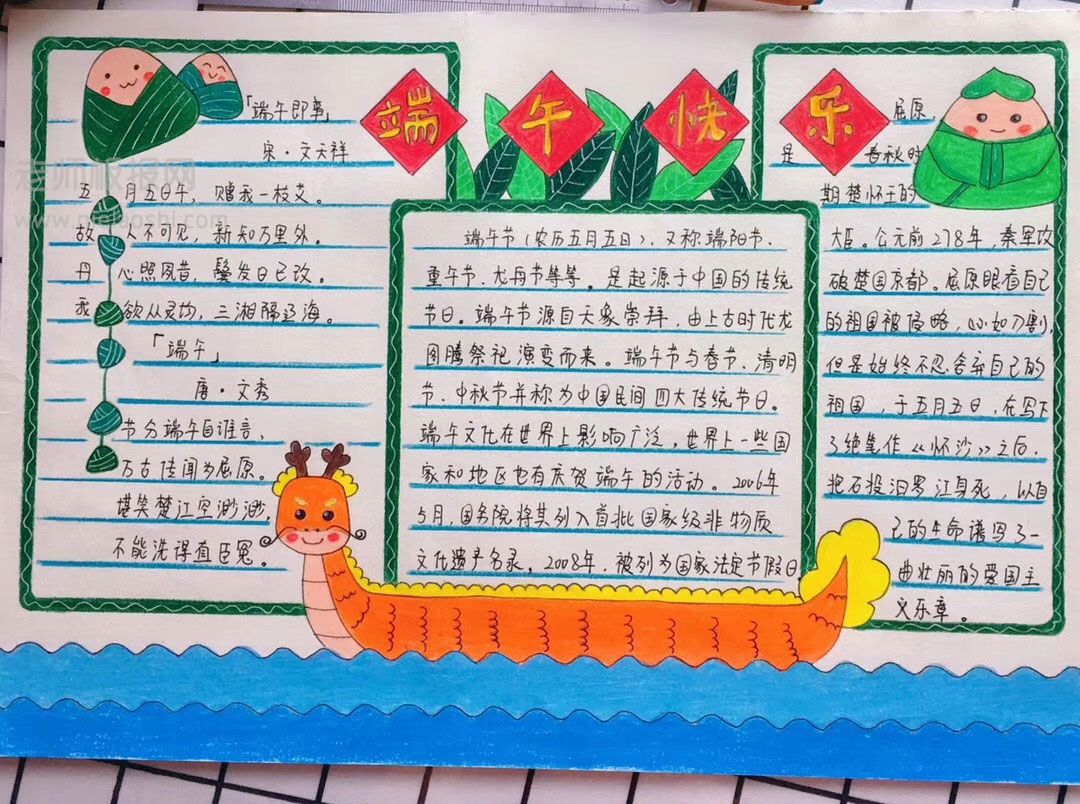 端午快乐
「端午即事」
宋·文天祥
五月五日午，赠我一枝艾。
故人不可见，新知万里外。
丹心照夙昔，鬓发日已改。
我欲从灵均，三湘隔辽海。
「端午」
唐·文秀
节分端午自谁言，
万古传闻为屈原。
堪笑楚江空渺渺，
不能洗得直臣冤。
端午节（农历五月五日），又称端阳节、
重午节、龙舟节等等。是起源于中国的传统
节日。端午节源自天象崇拜，由上古时代龙
图腾祭祀演变而来。端午节与春节、清明
节、中秋节并称为中国民间四大传统节日。
端午文化在世界上影响广泛，世界上一些国
家和地区也有庆贺端午的活动。2006年
5月，国务院将其列入首批国家级非物质
文化遗产名录。2008年，被列为国家法定节假日
屈原，
是春秋时
期楚怀王的
大臣。公元前278年，秦军攻
破楚国京都。屈原眼看自己
的祖国被侵略，心如刀割，
但是始终不忍舍弃自己的
祖国，于五月五日，在写下
了绝笔作《怀沙》之后，
把石投汨罗江身死，以自
己的生命谱写了一
曲壮丽的爱国主
义乐章。
老师板报网